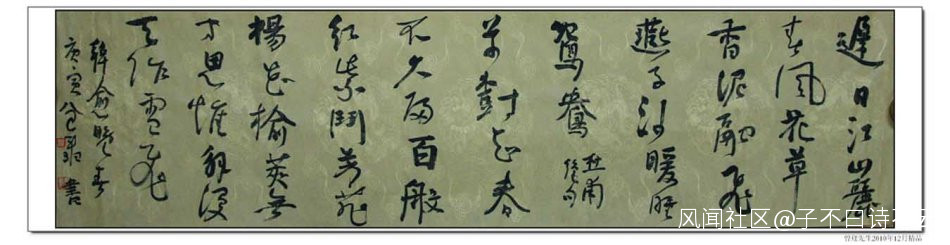 遲日江山麗
春風花草
香泥融飛
燕子沙暖睡
鴛鴦
杜甫
絕句
草樹知春
不久歸百般
紅紫鬥芳菲
楊花榆莢無
才思惟解漫
天作雪飛
韓愈晚春
庚寅 書
风闻社区@子不曰诗云
先生2010年12月精品